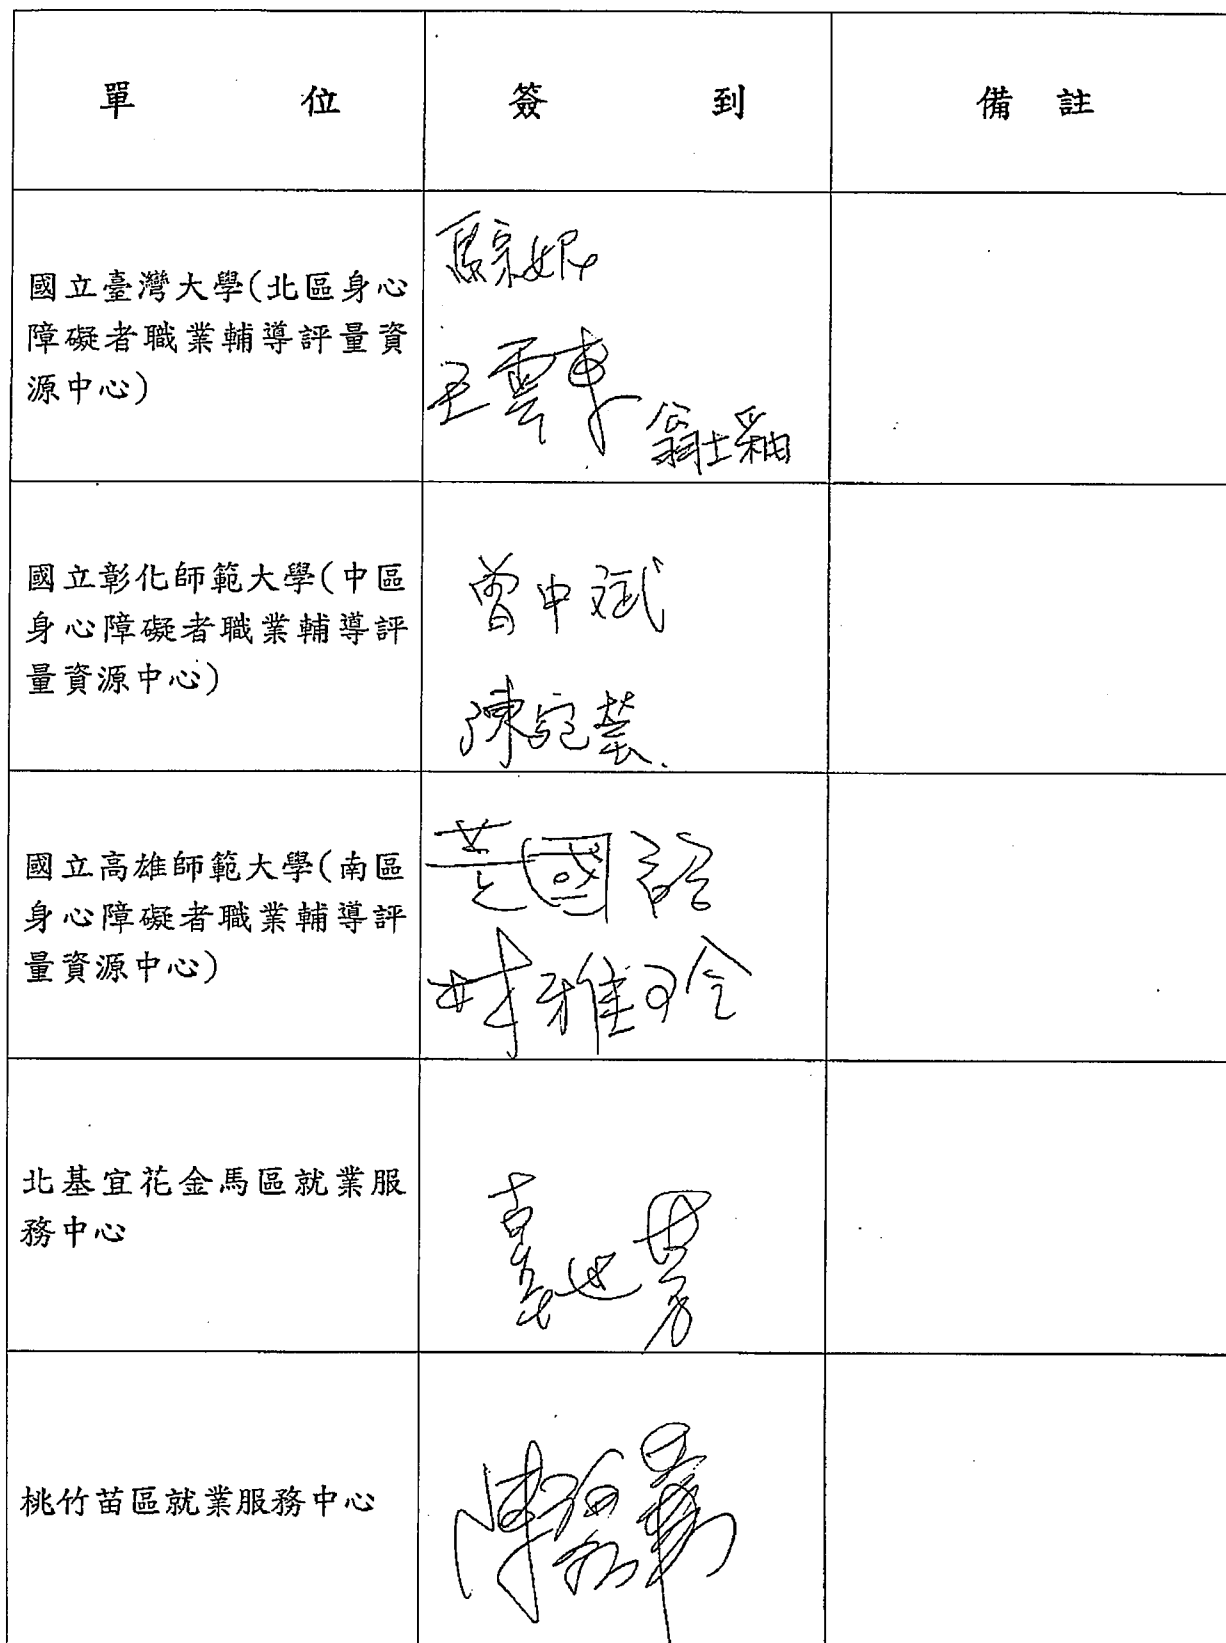 單 位 簽 到 備 註
國立臺灣大學(北區身心
障礙者職業輔導評量資
源中心)
王雲東
翁士釉
國立彰化師範大學(中區
身心障礙者職業輔導評
量資源中心)
曾中斌
陳宛芸
國立高雄師範大學(南區
身心障礙者職業輔導評
量資源中心)
林雅玲
北基宜花金馬區就業服
務中心
桃竹苗區就業服務中心